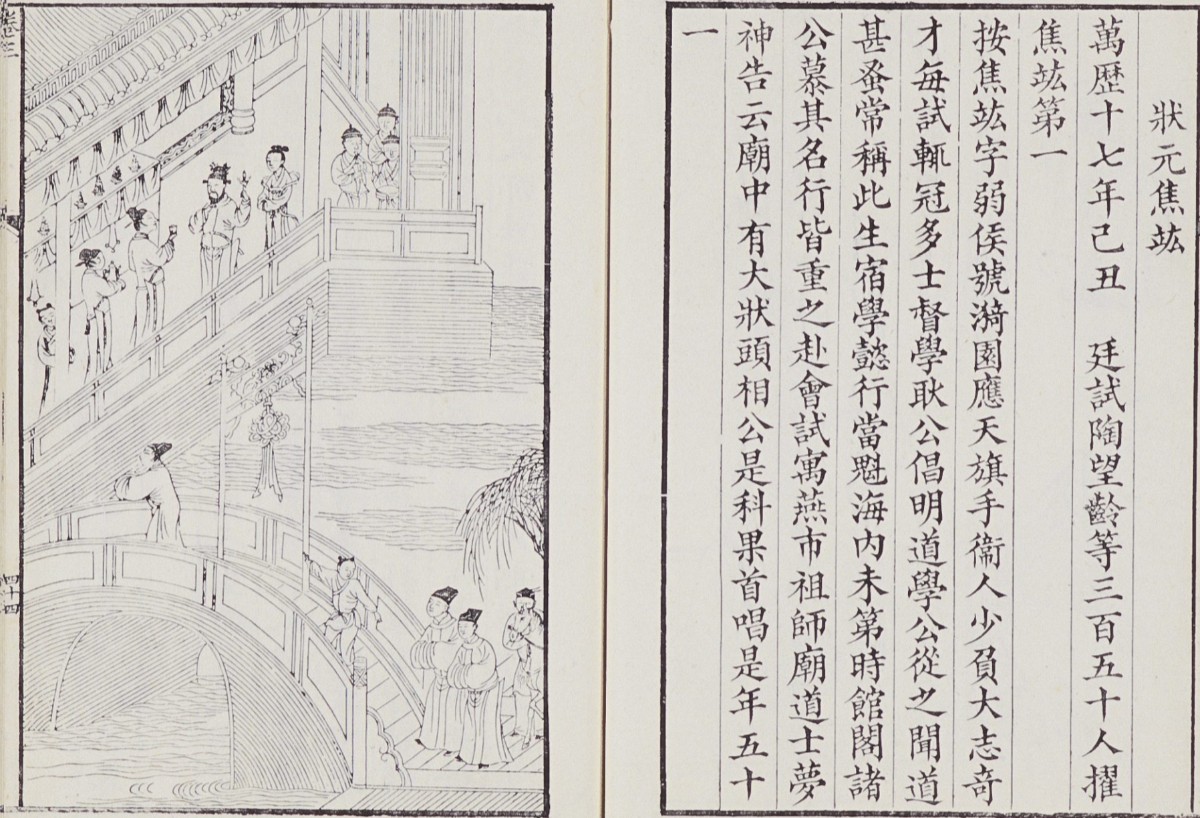 狀元焦竑
萬歷十七年己丑　廷試陶望齡等三百五十人擢
焦竑第一
按焦竑字弱侯號漪園應天旗手衞人少負大志奇
才每試輒冠多士督學耿公倡明道學公從之聞道
甚蚤常稱此生宿學懿行當魁海內未第時館閣諸
公慕其名行皆重之赴會試寓燕市祖師廟道士夢
神告云廟中有大狀頭相公是科果首唱是年五十
一
卷三
四十四